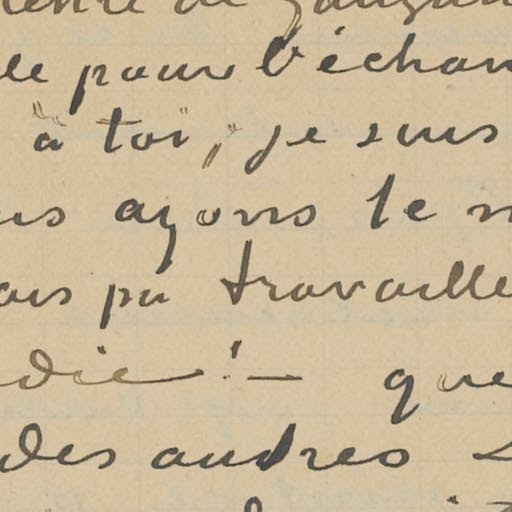 de
le pour l'échan
à toi, je suis
us ayons le n
ais pu travaille
die ! — que
des autres